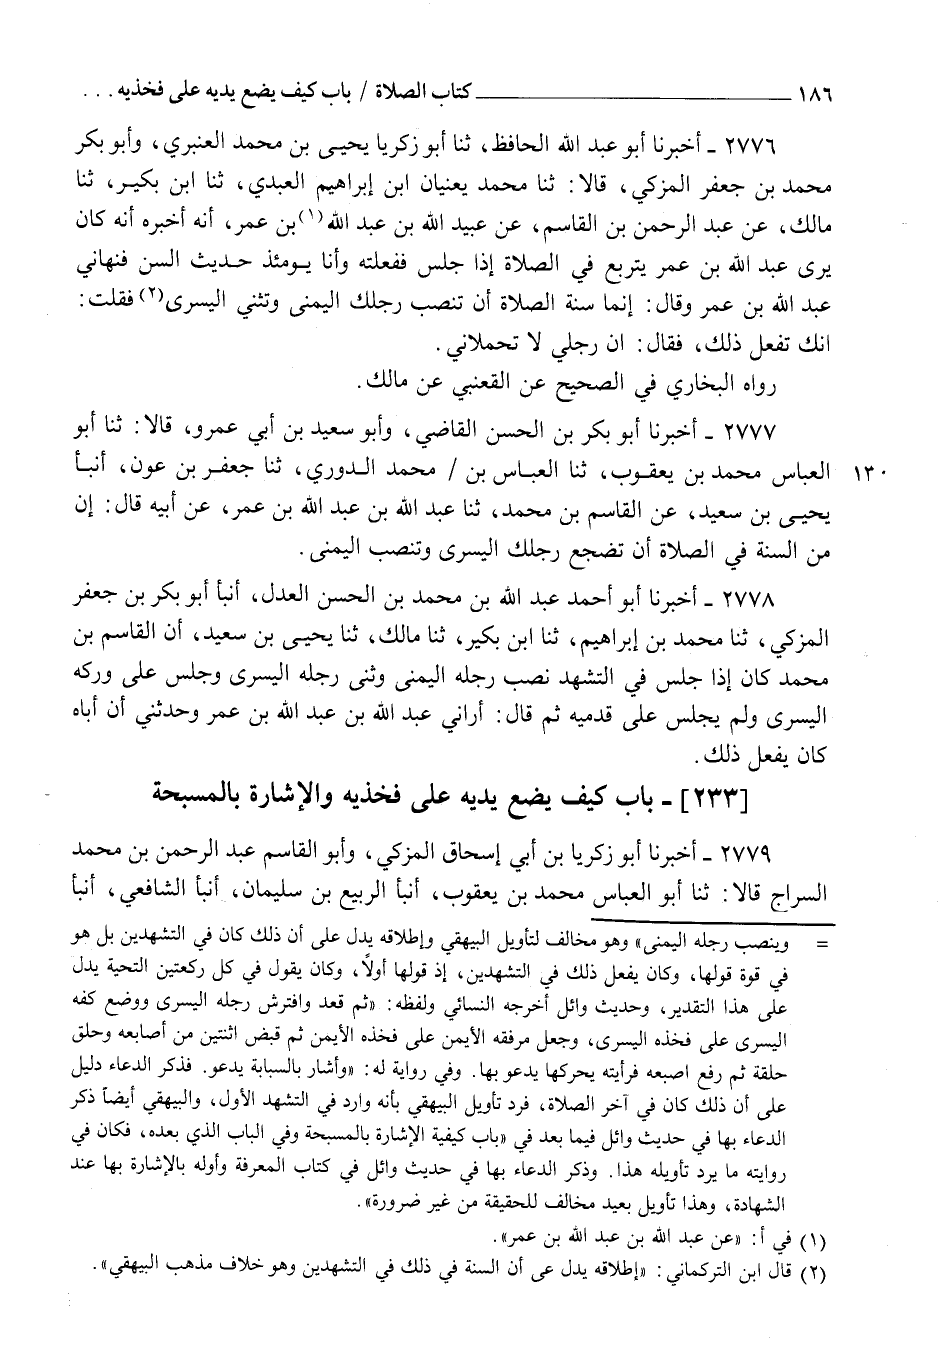 ١٨٦ ــــــــــــــــــــــــــــــ كتاب الصلاة / باب كيف يضع يديه على فخذيه . . .
٢٧٧٦ ـ أخبرنا أبو عبد الله الحافظ، ثنا أبو زكريا يحيى بن محمد العنبري، وأبو بكر
محمد بن جعفر المزكي، قالا: ثنا محمد يعنيان ابن إبراهيم العبدي، ثنا ابن بكير، ثنا
مالك، عن عبد الرحمن بن القاسم، عن عبيد الله بن عبد الله(١) بن عمر، أنه أخبره أنه كان
يرى عبد الله بن عمر يتربع في الصلاة إذا جلس ففعلته وأنا يومئذ حديث السن فنهاني
عبد الله بن عمر وقال: إنما سنة الصلاة أن تنصب رجلك اليمنى وتثني اليسرى(٢) فقلت:
انك تفعل ذلك، فقال: ان رجلي لا تحملاني.
رواه البخاري في الصحيح عن القعنبي عن مالك.
٢٧٧٧ ـ أخبرنا أبو بكر بن الحسن القاضي، وأبو سعيد بن أبي عمرو، قالا: ثنا أبو
العباس محمد بن يعقوب، ثنا العباس بن / محمد الدوري، ثنا جعفر بن عون، أنبأ ١٣٠
يحيى بن سعيد، عن القاسم بن محمد، ثنا عبد الله بن عبد الله بن عمر، عن أبيه قال: إن
من السنة في الصلاة أن تضجع رجلك اليسرى وتنصب اليمنى.
٢٧٧٨ ـ أخبرنا أبو أحمد عبد الله بن محمد بن الحسن العدل، أنبأ أبو بكر بن جعفر
المزكي، ثنا محمد بن إبراهيم، ثنا ابن بكير، ثنا مالك، ثنا يحيى بن سعيد، أن القاسم بن
محمد كان إذا جلس في التشهد نصب رجله اليمنى وثنى رجله اليسرى وجلس على وركه
اليسرى ولم يجلس على قدميه ثم قال: أراني عبد الله بن عبد الله بن عمر وحدثني أن أباه
كان يفعل ذلك.
[٢٣٣] ـ باب كيف يضع يديه على فخذيه والإشارة بالمسبحة
٢٧٧٩ ـ أخبرنا أبو زكريا بن أبي إسحاق المزكي، وأبو القاسم عبد الرحمن بن محمد
السراج قالا: ثنا أبو العباس محمد بن يعقوب، أنبأ الربيع بن سليمان، أنبأ الشافعي، أنبأ
= وينصب رجله اليمنى» وهو مخالف لتأويل البيهقي وإطلاقه يدل على أن ذلك كان في التشهدين بل هو
في قوة قولها، وكان يفعل ذلك في التشهدين، إذ قولها أولاً، وكان يقول في كل ركعتين التحية يدل
على هذا التقدير، وحديث وائل أخرجه النسائي ولفظه: «ثم قعد وافترش رجله اليسرى ووضع كفه
اليسرى على فخذه اليسرى، وجعل مرفقه الأيمن على فخذه الأيمن ثم قبض اثنتين من أصابعه وحلق
حلقة ثم رفع اصبعه فرأيته يحركها يدعو بها. وفي رواية له: «وأشار بالسبابة يدعو. فذكر الدعاء دليل
على أن ذلك كان في آخر الصلاة، فرد تأويل البيهقي بأنه وارد في التشهد الأول، والبيهقي أيضاً ذكر
الدعاء بها في حديث وائل فيما بعد في «باب كيفية الإشارة بالمسبحة وفي الباب الذي بعده، فكان في
روايته ما يرد تأويله هذا. وذكر الدعاء بها في حديث وائل في كتاب المعرفة وأوله بالإشارة بها عند
الشهادة، وهذا تأويل بعيد مخالف للحقيقة من غير ضرورة».
(١) في أ: «عن عبد الله بن عبد الله بن عمر».
(٢) قال ابن التركماني: «إطلاقه يدل عى أن السنة في ذلك في التشهدين وهو خلاف مذهب البيهقي».